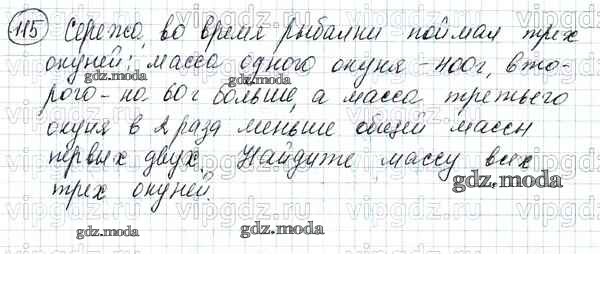 115 Сережа во время рыбалки поймал трех
окуней: масса одного окуня - 400г, вто-
рого - на 60г больше, а масса третьего
окуня в 2 раза меньше общей массы
первых двух. Найдите массу всех
трех окуней.
gdz.moda
gdz.moda
gdz.moda
gdz.moda
gdz.moda
gdz.moda